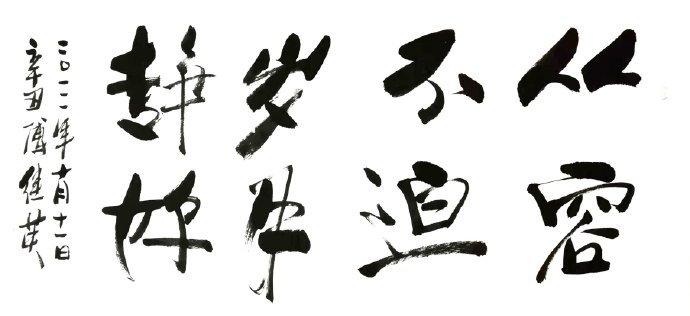 从容
不迫
岁年
静好
二〇二一年十月十一日
辛丑傅佳英